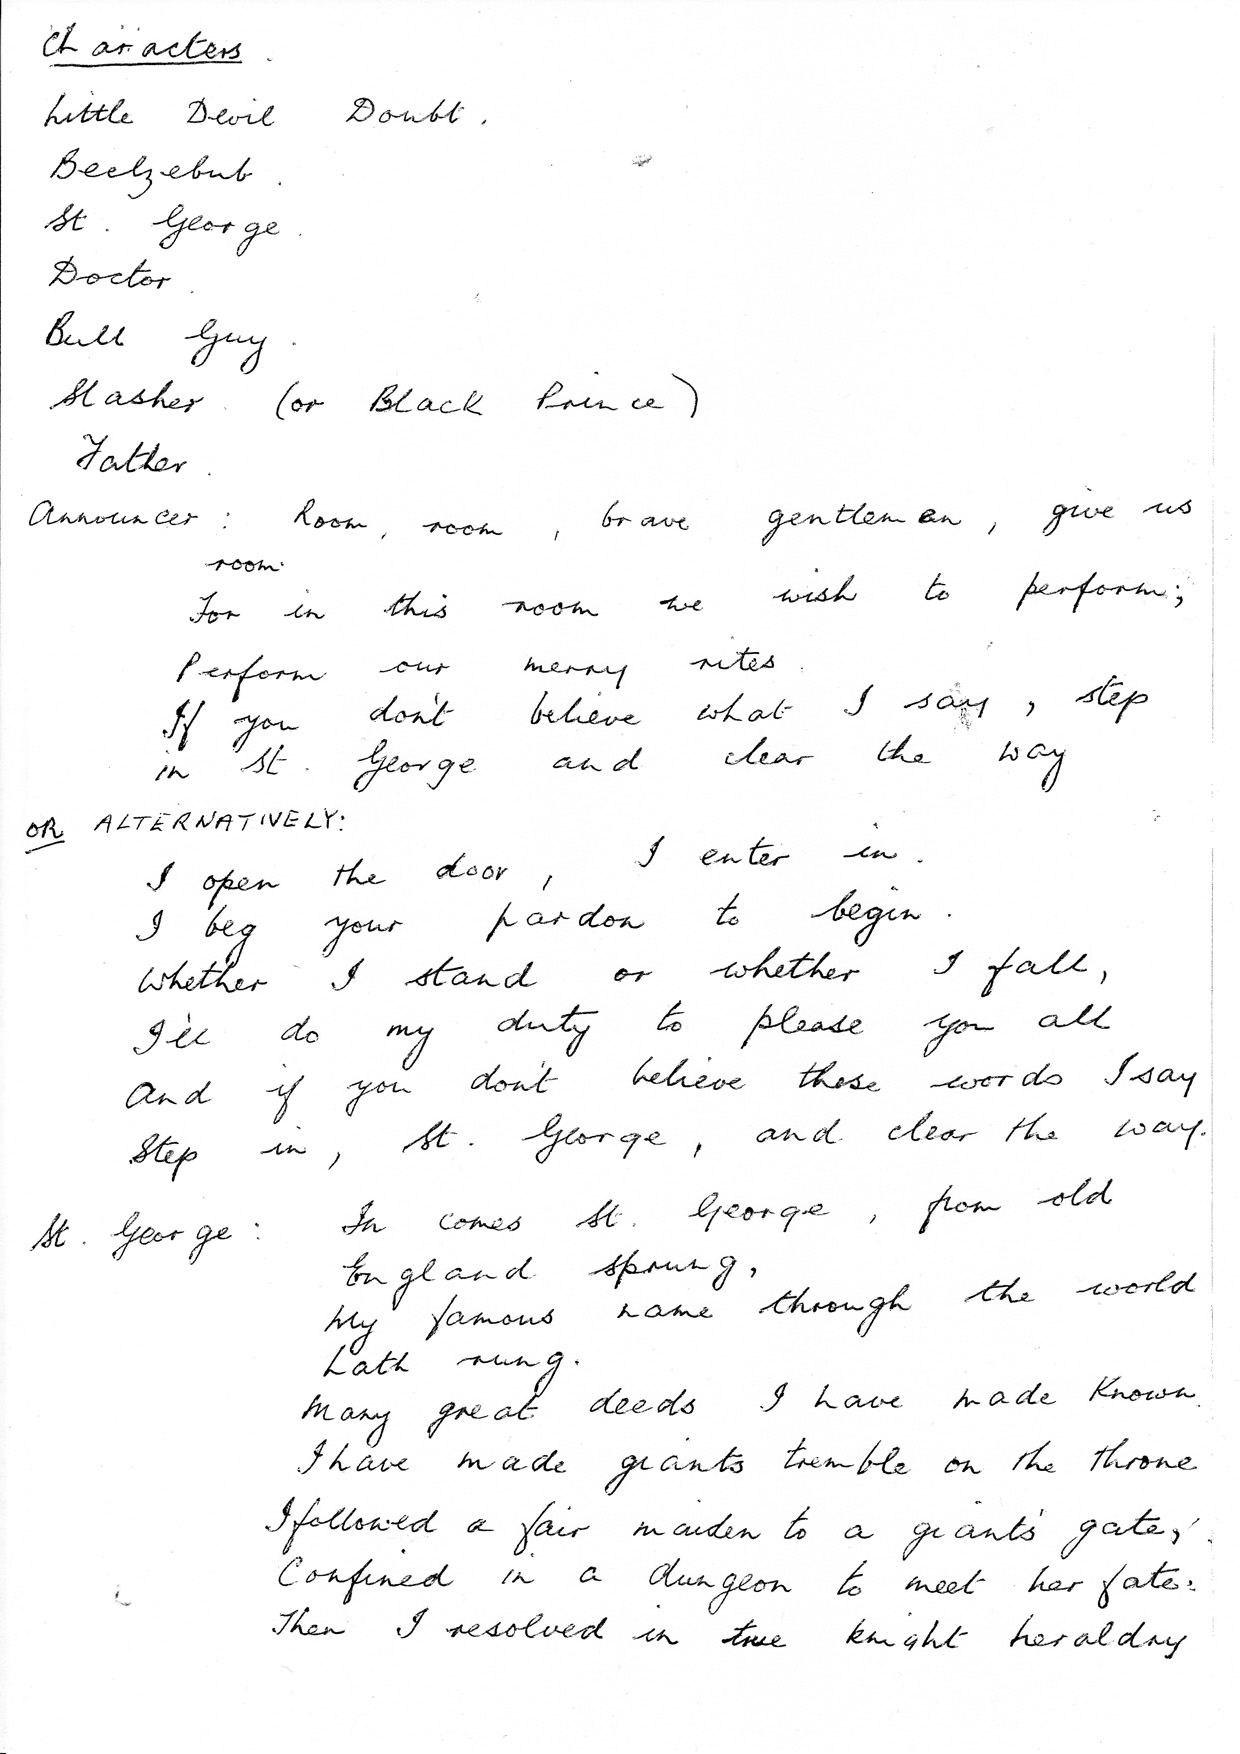 Characters.
Little Devil Doubt.
Beelzebub.
St. George.
Doctor.
Bull Guy.
Slasher. (or Black Prince)
Father.
Announcer: Room, room, brave gentlemen, give us
room.
For in this room we wish to perform;
Perform our merry rites.
If you don't believe what I say, step
in St. George and clear the way
OR ALTERNATIVELY:
I open the door, I enter in.
I beg your pardon to begin.
Whether I stand or whether I fall,
I'll do my duty to please you all
And if you don't believe these words I say
Step in, St. George, and clear the way.
St. George: In comes St. George, from old
England sprung,
My famous name through the world
hath rung.
Many great deeds I have made known.
I have made giants tremble on the throne
I followed a fair maiden to a giant's gate,
Confined in a dungeon to meet her fate.
Then I resolved in true knight heraldry